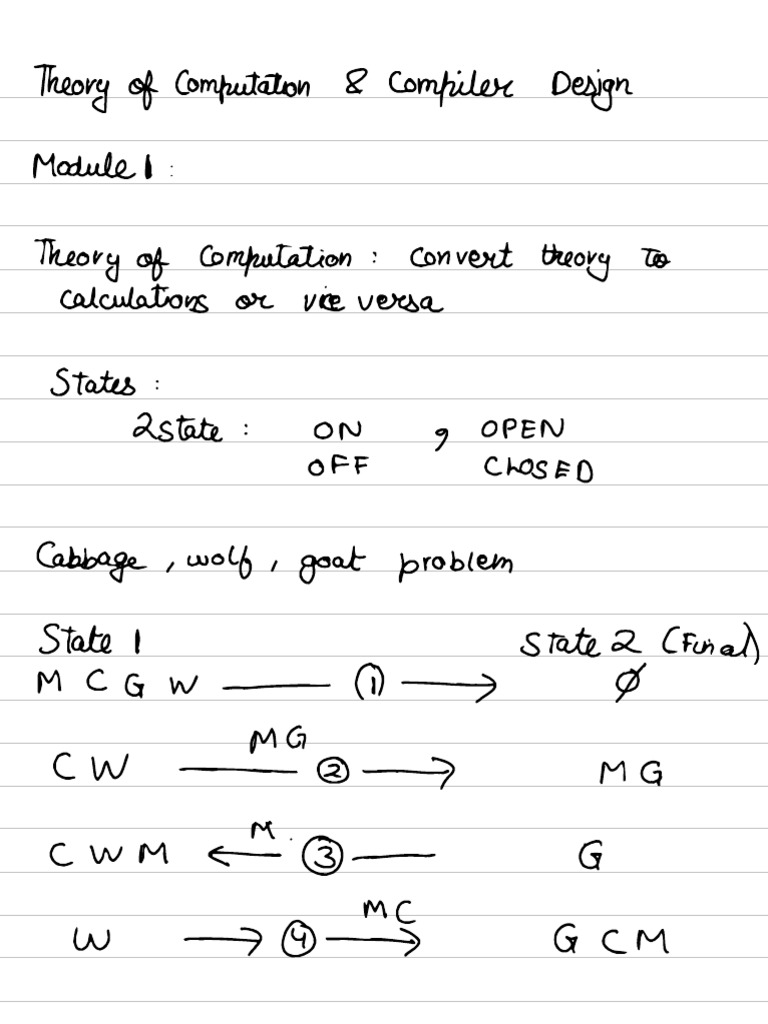 Theory of Computation & Compiler Design
Module 1 :
Theory of Computation : convert theory to
calculations or vice versa
States :
2 state : ON , OPEN
OFF CLOSED
Cabbage , wolf , goat problem
State 1 State 2 (Final)
M C G W ① → ∅
MG
C W ② → M G
M
C W M ← ③ G
MC
W → ④ → G C M